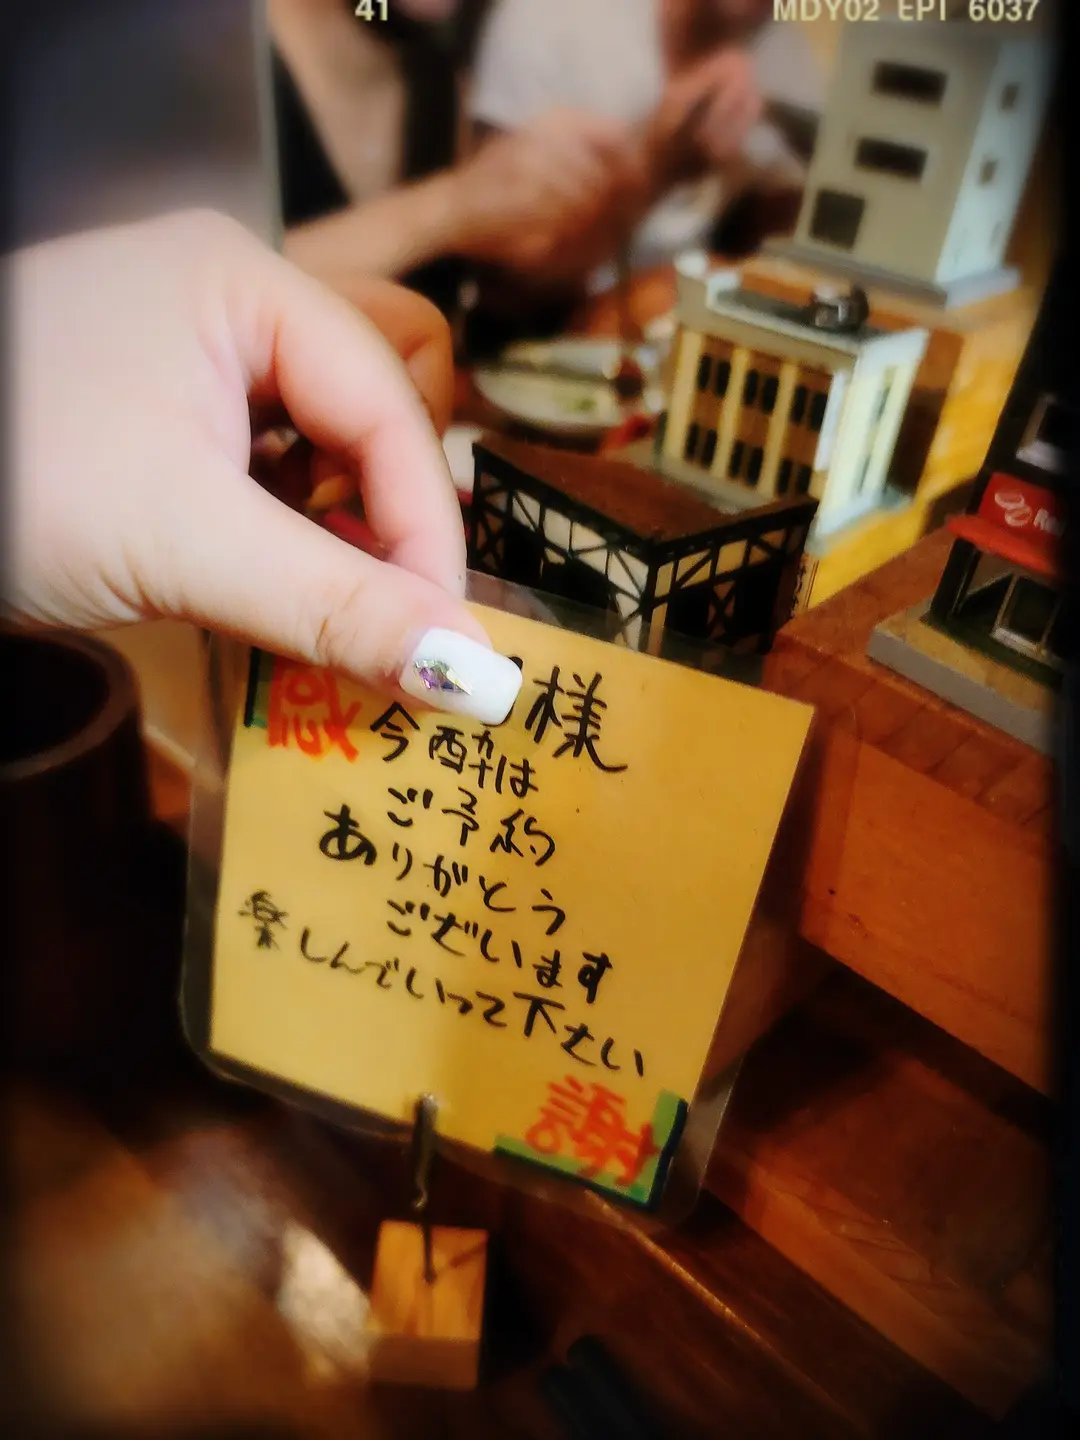 41
MDY02 EPI 6037
様
感
今酔は
ご予約
ありがとう
ございます
楽しんでいって下さい
謝